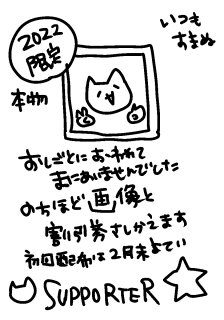 2022
限定
本物
いつも
すまぬ
おしごとにおわれて
まにあいませんでした
のちほど画像と
割引券さしかえます
初回配布は2月末よてい
SUPPORTER